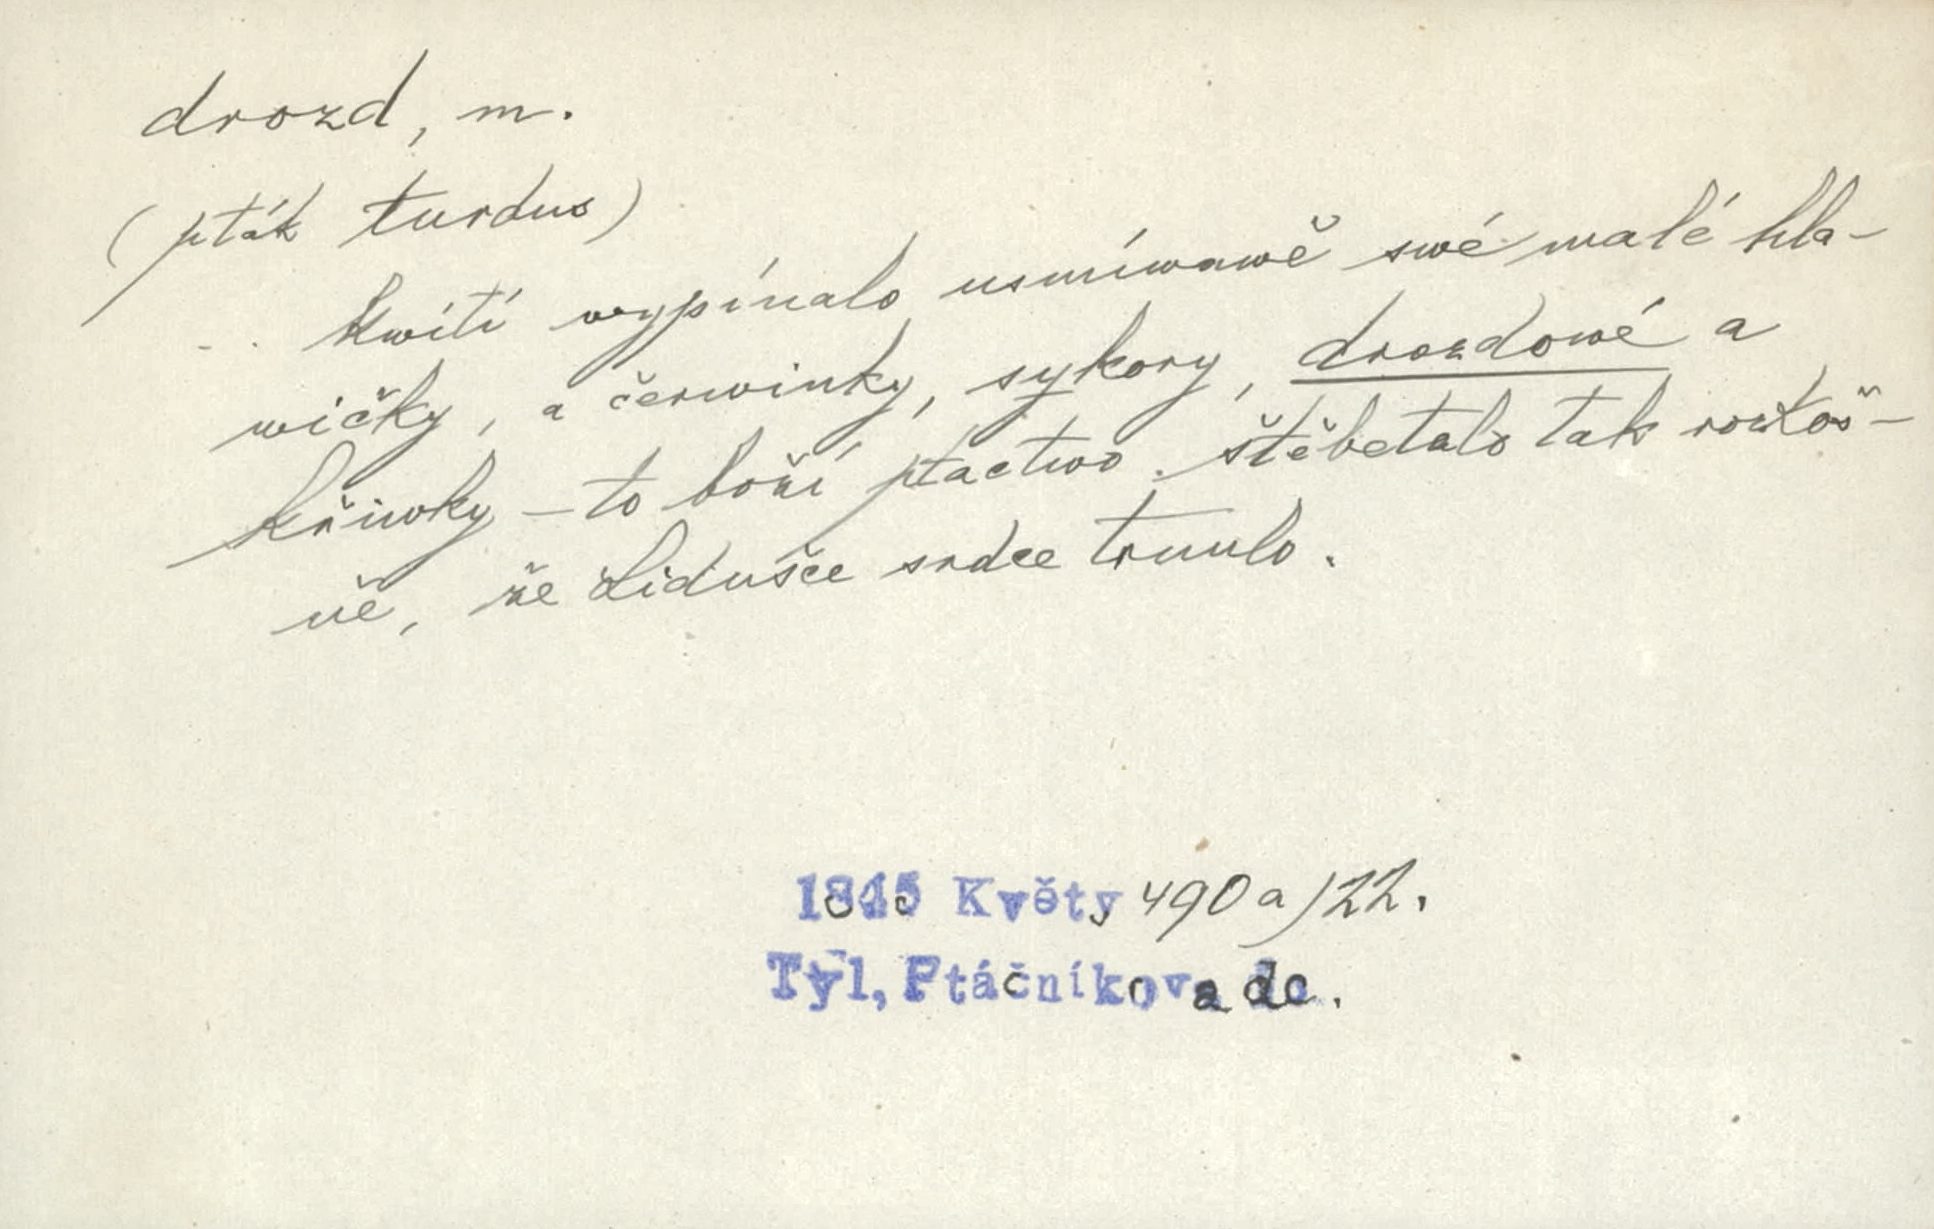 drozd, m.
(pták turdus)
.. kwítí wypínalo usmíwawě swé malé hla-
wičky, a čerwinky, sykory, drozdowé a
křiwky – to boží ptactwo štěbetalo tak rozkoš-
ně, že Lidušce srdce trnulo.
1845 Květy 490a/22.
Tyl, Ptáčníkova dc.